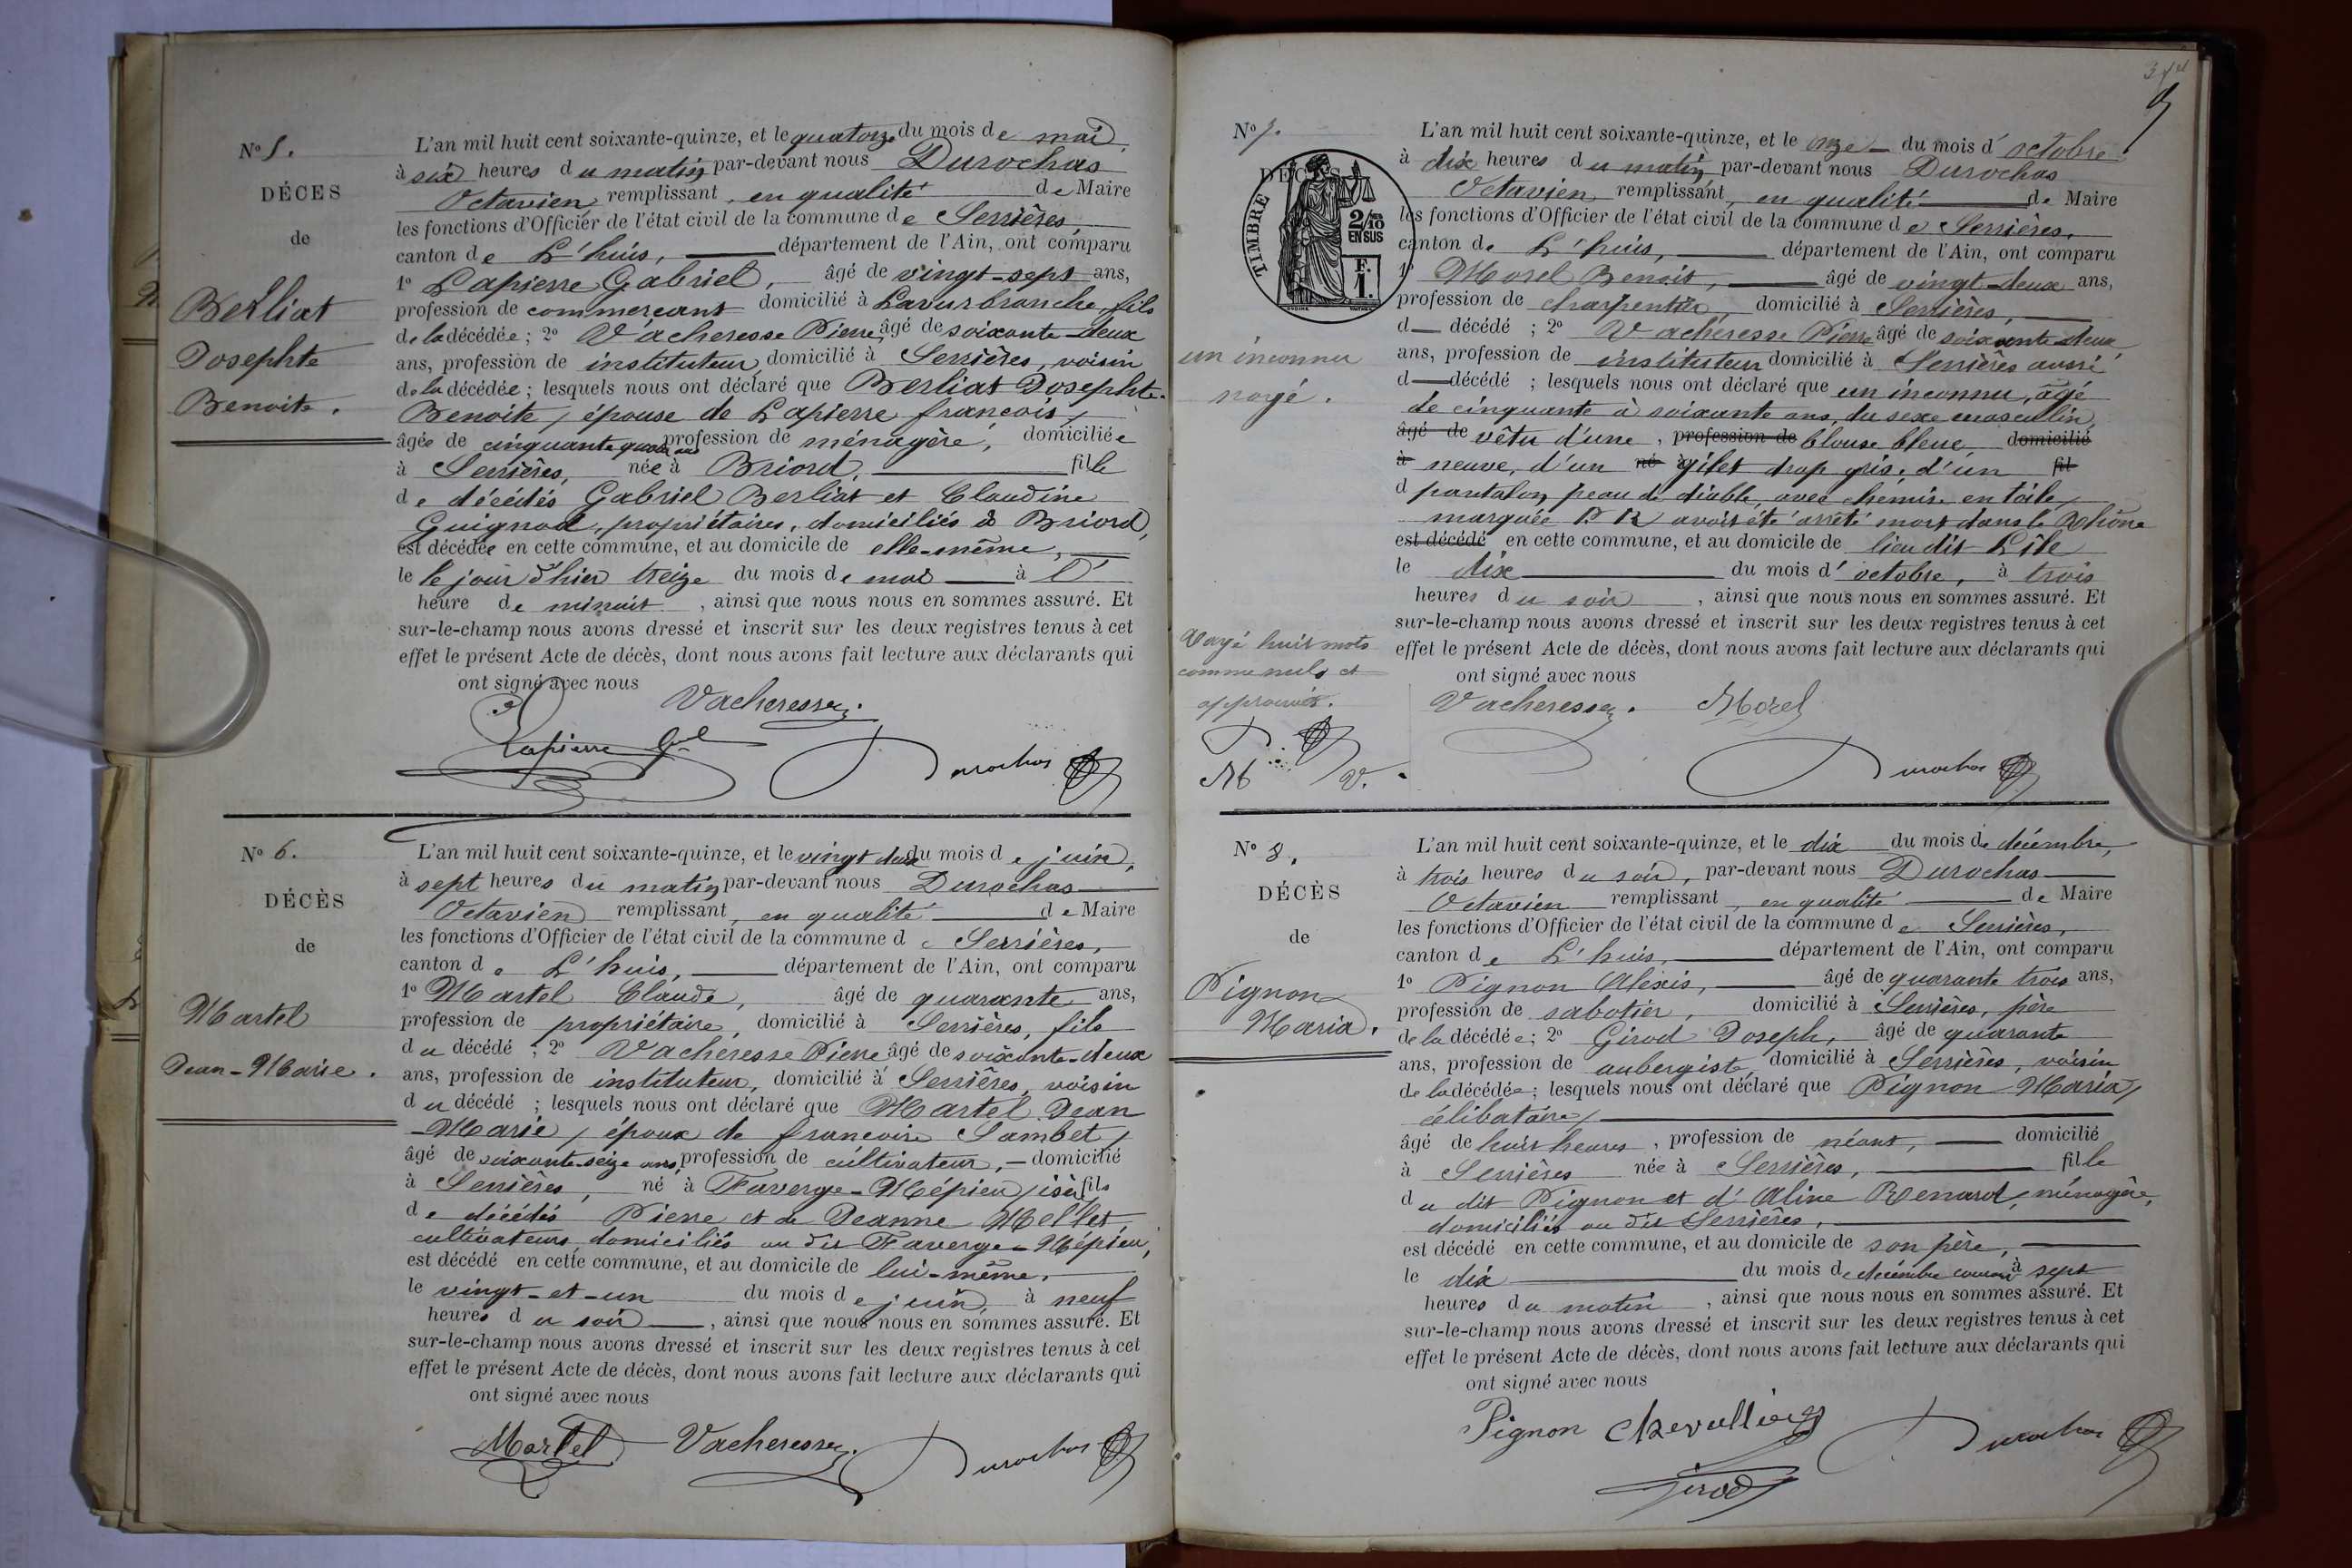 N° 5.
DÉCES
de
Berliat
Josephte
Benoite.
L'an mil huit cent soixante-quinze, et le quatorze du mois de mai,
à six heures du matin par-devant nous Durochas
Octavien remplissant, en qualité de Maire
les fonctions d'Officier de l'état civil de la commune de Serrières,
canton de L'huis, département de l'Ain, ont comparu
1° Lapierre Gabriel, âgé de vingt-sept ans,
profession de commerçant domicilié à Lavurbranche, fils
de la décédée ; 2° Vacheresse Pierre, âgé de soixante-deux
ans, profession de instituteur, domicilié à Serrières, voisin
de la décédée ; lesquels nous ont déclaré que Berliat Josephte-
Benoite, épouse de Lapierre françois,
âgée de cinquante quatre ans profession de ménagère, domiciliée
à Serrières, née à Briord, fille
de décédés Gabriel Berliat et Claudine
Guignod, propriétaires, domiciliés à Briord,
est décédée en cette commune, et au domicile de elle-même,
le le jour d'hier treize du mois de mai à l'
heure de minuit, ainsi que nous nous en sommes assuré. Et
sur-le-champ nous avons dressé et inscrit sur les deux registres tenus à cet
effet le présent Acte de décès, dont nous avons fait lecture aux déclarants qui
ont signé avec nous
Vacheresse.
Lapierre Gel
Durochas
N° 6.
DÉCÈS
de
Martel
Jean-Marie.
L'an mil huit cent soixante-quinze, et le vingt deux du mois de juin,
à sept heures du matin par-devant nous Durochas
Octavien remplissant, en qualité de Maire
les fonctions d'Officier de l'état civil de la commune de Serrières,
canton de L'huis, département de l'Ain, ont comparu
1° Martel Claude, âgé de quarante ans,
profession de propriétaire, domicilié à Serrières, fils
du décédé ; 2° Vacheresse Pierre âgé de soixante-deux
ans, profession de instituteur, domicilié à Serrières, voisin
du décédé ; lesquels nous ont déclaré que Martel Jean
-Marie, époux de francoise Sambet,
âgé de soixante-seize ans, profession de cultivateur, domicilié
à Serrières, né à Faverge-Mépieu, isère fils
de décédés Pierre et de Jeanne Mellet,
cultivateurs domiciliés au dit Faverge-Mépieu,
est décédé en cette commune, et au domicile de lui-même.
le vingt-et-un du mois de juin, à neuf
heures du soir, ainsi que nous nous en sommes assuré. Et
sur-le-champ nous avons dressé et inscrit sur les deux registres tenus à cet
effet le présent Acte de décès, dont nous avons fait lecture aux déclarants qui
ont signé avec nous
Martel Vacheresse. Durochas
9
N° 7.
DÉCÈS
TIMBRE
2/10
EN SUS
F.
1.
un inconnu
noyé.
L'an mil huit cent soixante-quinze, et le onze du mois d'octobre
à dix heures du matin par-devant nous Durochas
Octavien remplissant, en qualité de Maire
les fonctions d'Officier de l'état civil de la commune de Serrières,
canton de L'huis, département de l'Ain, ont comparu
1° Morel Benoit, âgé de vingt-deux ans,
profession de charpentier, domicilié à Serrières,
d décédé ; 2° Vacheresse Pierre âgé de soixante deux
ans, profession de instituteur domicilié à Serrières aussi
d décédé ; lesquels nous ont déclaré que un inconnu, âgé
de cinquante à soixante ans, du sexe masculin,
âgé de vêtu d'une, profession de blouse bleue, domicilié
à neuve, d'un né à gilet drap gris, d'un fil
d pantalon peau de diable, avec chemise en toile,
marquée P R avoir été arrêté mort dans le Rhône
est décédé en cette commune, et au domicile de lieu dit L'île
le dix du mois d'octobre, à trois
heures du soir, ainsi que nous nous en sommes assuré. Et
sur-le-champ nous avons dressé et inscrit sur les deux registres tenus à cet
effet le présent Acte de décès, dont nous avons fait lecture aux déclarants qui
ont signé avec nous
Rayé huit mots
comme nuls et
approuvés.
M V.
Vacheresse. Morel
Durochas
N° 8.
DÉCÈS
de
Pignon
Maria.
L'an mil huit cent soixante-quinze, et le dix du mois de décembre,
à trois heures du soir, par-devant nous Durochas
Octavien remplissant, en qualité de Maire
les fonctions d'Officier de l'état civil de la commune de Serrières,
canton de L'huis, département de l'Ain, ont comparu
1° Pignon Alexis, âgé de quarante trois ans,
profession de sabotier, domicilié à Serrières, père
de la décédée ; 2° Girod Joseph, âgé de quarante
ans, profession de aubergiste domicilié à Serrières, voisin
de la décédée ; lesquels nous ont déclaré que Pignon Maria,
célibataire,
âgé de huit heures, profession de néant, domicilié
à Serrières née à Serrières, fille
du dit Pignon et d'Aline Renard, ménagère,
domiciliés au dit Serrières,
est décédé en cette commune, et au domicile de son père,
le dix du mois de décembre courant à sept
heures du matin, ainsi que nous nous en sommes assuré. Et
sur-le-champ nous avons dressé et inscrit sur les deux registres tenus à cet
effet le présent Acte de décès, dont nous avons fait lecture aux déclarants qui
ont signé avec nous
Pignon chevallier
Durochas
Girod